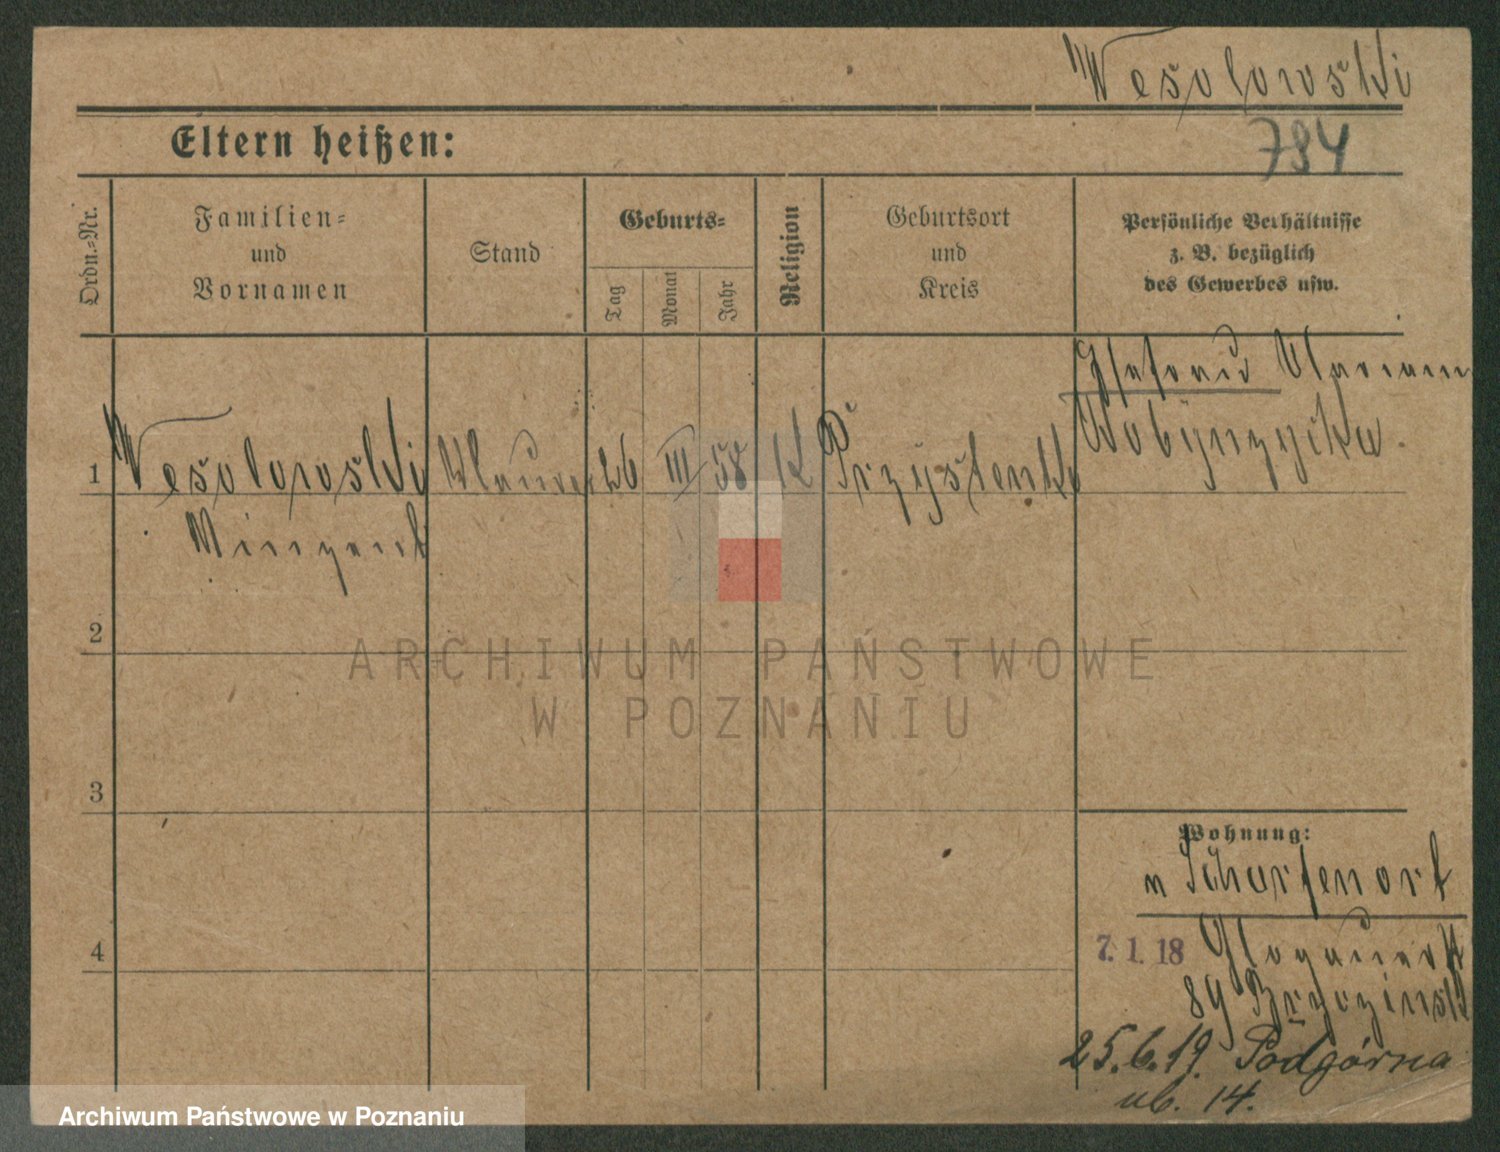 Wesolowski
784
Eltern heißen:
Ordn.=Nr.
Familien=
und
Vornamen
Stand
Geburts=
Tag
Monat
Jahr
Religion
Geburtsort
und
Kreis
Persönliche Verhältnisse
z. B. bezüglich
des Gewerbes usw.
1
Wesolowski
Maurer
26
III
58
K
Vinzent
2
3
4
Wohnung:
n Scharfenort
7. 1. 18
Glogauerst
89
25.6.19. Podgórna
ub. 14.
ARCHIWUM PAŃSTWOWE
W POZNANIU
Archiwum Państwowe w Poznaniu